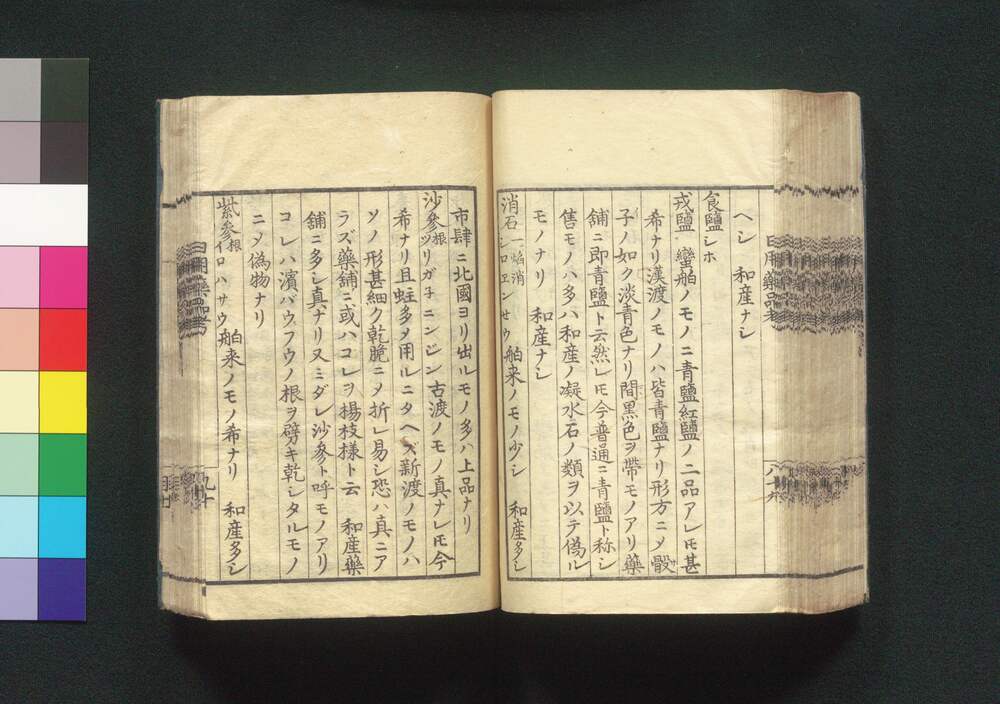 ヘシ 和産ナシ
食鹽 シホ
戎鹽 蠻舶ノモノニ青鹽紅鹽ノ二品アレ𪜈甚
希ナリ漢渡ノモノハ皆青鹽ナリ形方ニ〆骰
子ノ如ク淡青色ナリ間黒色ヲ帶モノアリ藥
舗ニ即青鹽ト云然レ𪜈今普通ニ青鹽ト称シ
售モノハ多ハ和産ノ凝水石ノ類ヲ以テ偽ル
モノナリ 和産ナシ
消石 一焔消 シロエンセウ 舶来ノモノ少シ 和産多シ
市肆ニ北國ヨリ出ルモノ多ハ上品ナリ
沙參根 ツリガ子ニンジン 古渡ノモノ真ナレ𪜈今
希ナリ且蛀多〆用ルニタヘズ新渡ノモノハ
ソノ形甚細ク乾脆ニ〆折レ易シ恐ハ真ニア
ラズ藥舗ニ或ハコレヲ楊枝樣ト云 和産藥
舗ニ多シ真ナリ又ミダレ沙參ト呼モノアリ
コレハ濱バウフウノ根ヲ劈キ乾シタルモノ
ニ〆偽物ナリ
紫參根 イロハサウ 舶来ノモノ希ナリ 和産多シ